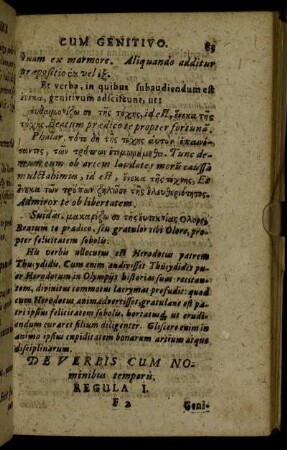 CUM GENITIVO. 83
tuum ex marmore. Aliquando additur
præpositio ἐκ vel ἐξ.
Et verba, in quibus subaudiendum est
ἕνεκα, genitivum adsciscunt, ut:
εὐδαιμονίζω σε τῆς τύχης, id est, ἕνεκα τῆς
τύχης. Beatum prædico te propter fortunā.
τότε δὴ τῆς τέχνης αυτὸν ἐπαινέ-
σαντες, τῶν τρόπων Tunc de-
mum eum ob artem laudatum morū caussâ
multabimus, id est, ἕνεκα τῆς τέχνης, &
ἕνεκα τῶν τρόπων ζηλῶσε τῆς ἐλευθεριότητος.
Admiror te ob libertatem.
Suidas. μακαρίζω σε τῆς εὐτεκνίας Olore,
Beatum te prædico, seu gratulor tibi Olore, pro-
pter felicitatem sobolis.
His verbis allocutus est Herodotus patrem
Thucydidis. Cum enim audivisset Thucydides pu-
er Herodotum in Olympijs historias suas recitan-
tem, divinitus commotus lacrymas profudit: quod
cum Herodotus animadvertisset, gratulans est pa-
tri ipsius felicitatem sobolis, hortatus, ut erudi-
endum curaret filium diligenter. Gliscere enim in
animo ipsius cupiditatem bonarum artium atque
disciplinarum.
DE VERBIS CUM NO-
minibus temporis.
REGULA I.
F 2 Geni-